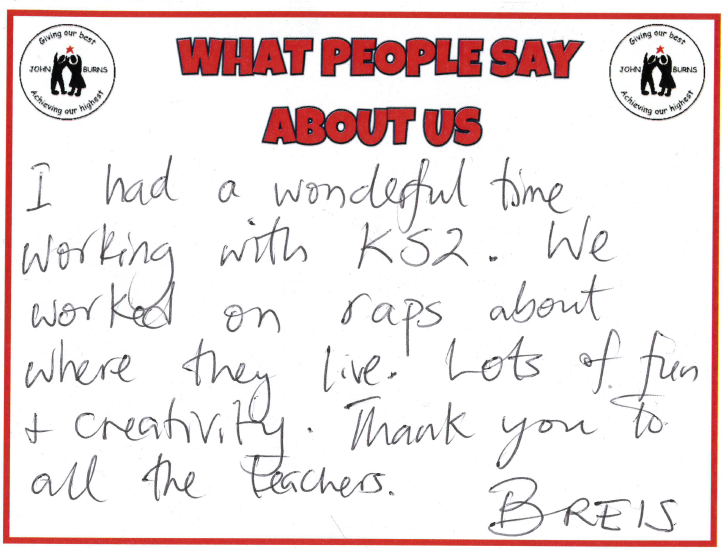 Giving our best
JOHN BURNS
Achieving our highest
WHAT PEOPLE SAY
ABOUT US
Giving our best
JOHN BURNS
Achieving our highest
I had a wonderful time
working with KS2. We
worked on raps about
where they live. Lots of fun
+ creativity. Thank you to
all the teachers.
BREIS